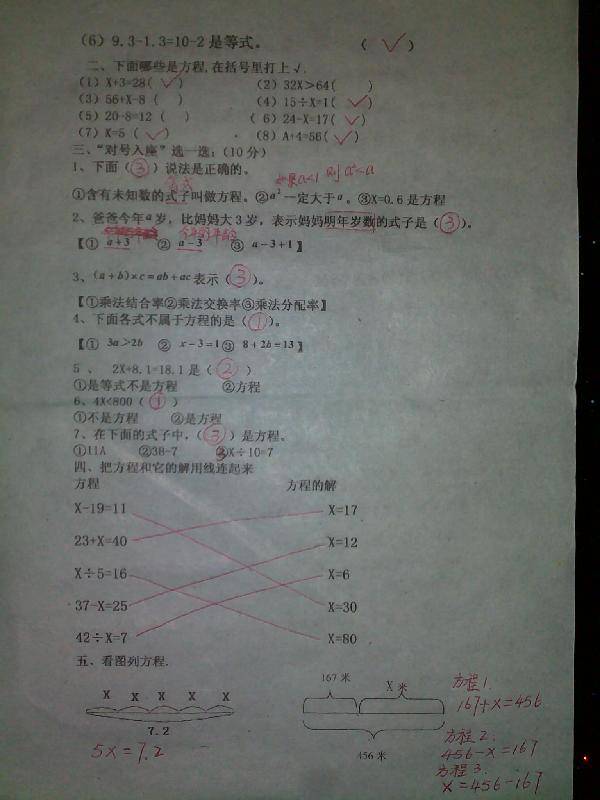 （6）9.3-1.3=10-2 是等式。 （ ✓ ）
二、下面哪些是方程,在括号里打上√.
（1）X+3=28( ✓ ) （2）32X>64( )
（3）56+X-8 ( ) （4）15÷X=1( ✓ )
（5）20-8=12 ( ) （ 6）24-X=17( ✓ )
（7）X=5 ( ✓ ) （8）A+4=56( ✓ )
三、“对号入座”选一选:（10分）
如果a<1 则a²<a
1、下面（ ③ ）说法是正确的。
等式
①含有未知数的式子叫做方程。②a²一定大于a。③X=0.6 是方程
2、爸爸今年a岁，比妈妈大3岁，表示妈妈明年岁数的式子是（ ③ ）。
【① a+3 ② a-3 ③ a-3+1】
3、(a+b)×c=ab+ac表示（ ③ ）。
【①乘法结合率②乘法交换率③乘法分配率】
4、下面各式不属于方程的是（ ① ）。
【① 3a>2b ② x-3=1③ 8+2b=13】
5 、 2X+8.1=18.1 是（ ② ）
①是等式不是方程 ②方程
6、4X<800（ ① ）
①不是方程 ②是方程
7、在下面的式子中,（ ③ ）是方程。
①11A ②38-7 ③X÷10=7
四、把方程和它的解用线连起来
方程 方程的解
X-19=11 X=17
23+X=40 X=12
X÷5=16 X=6
37-X=25 X=30
42÷X=7 X=80
五、看图列方程.
X X X X X
7.2
5X=7.2
167 米 X 米
456 米
方程1
167+X=456
方程2.
456-X=167
方程3.
X=456-167